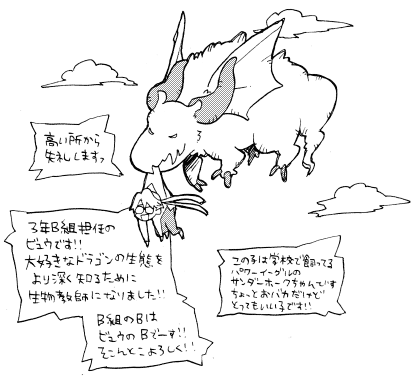 高い所から
失礼しますっ
3年B組担任の
ビュウです!!
大好きなドラゴンの生態を
より深く知るために
生物教師になりました!!
B組のBは
ビュウのBでーす!!
そこんとこよろしく!!
この子は学校で飼ってる
パワーイーグルの
サンダーホークちゃんです
ちょっとおバカだけど
とってもいい子です!!